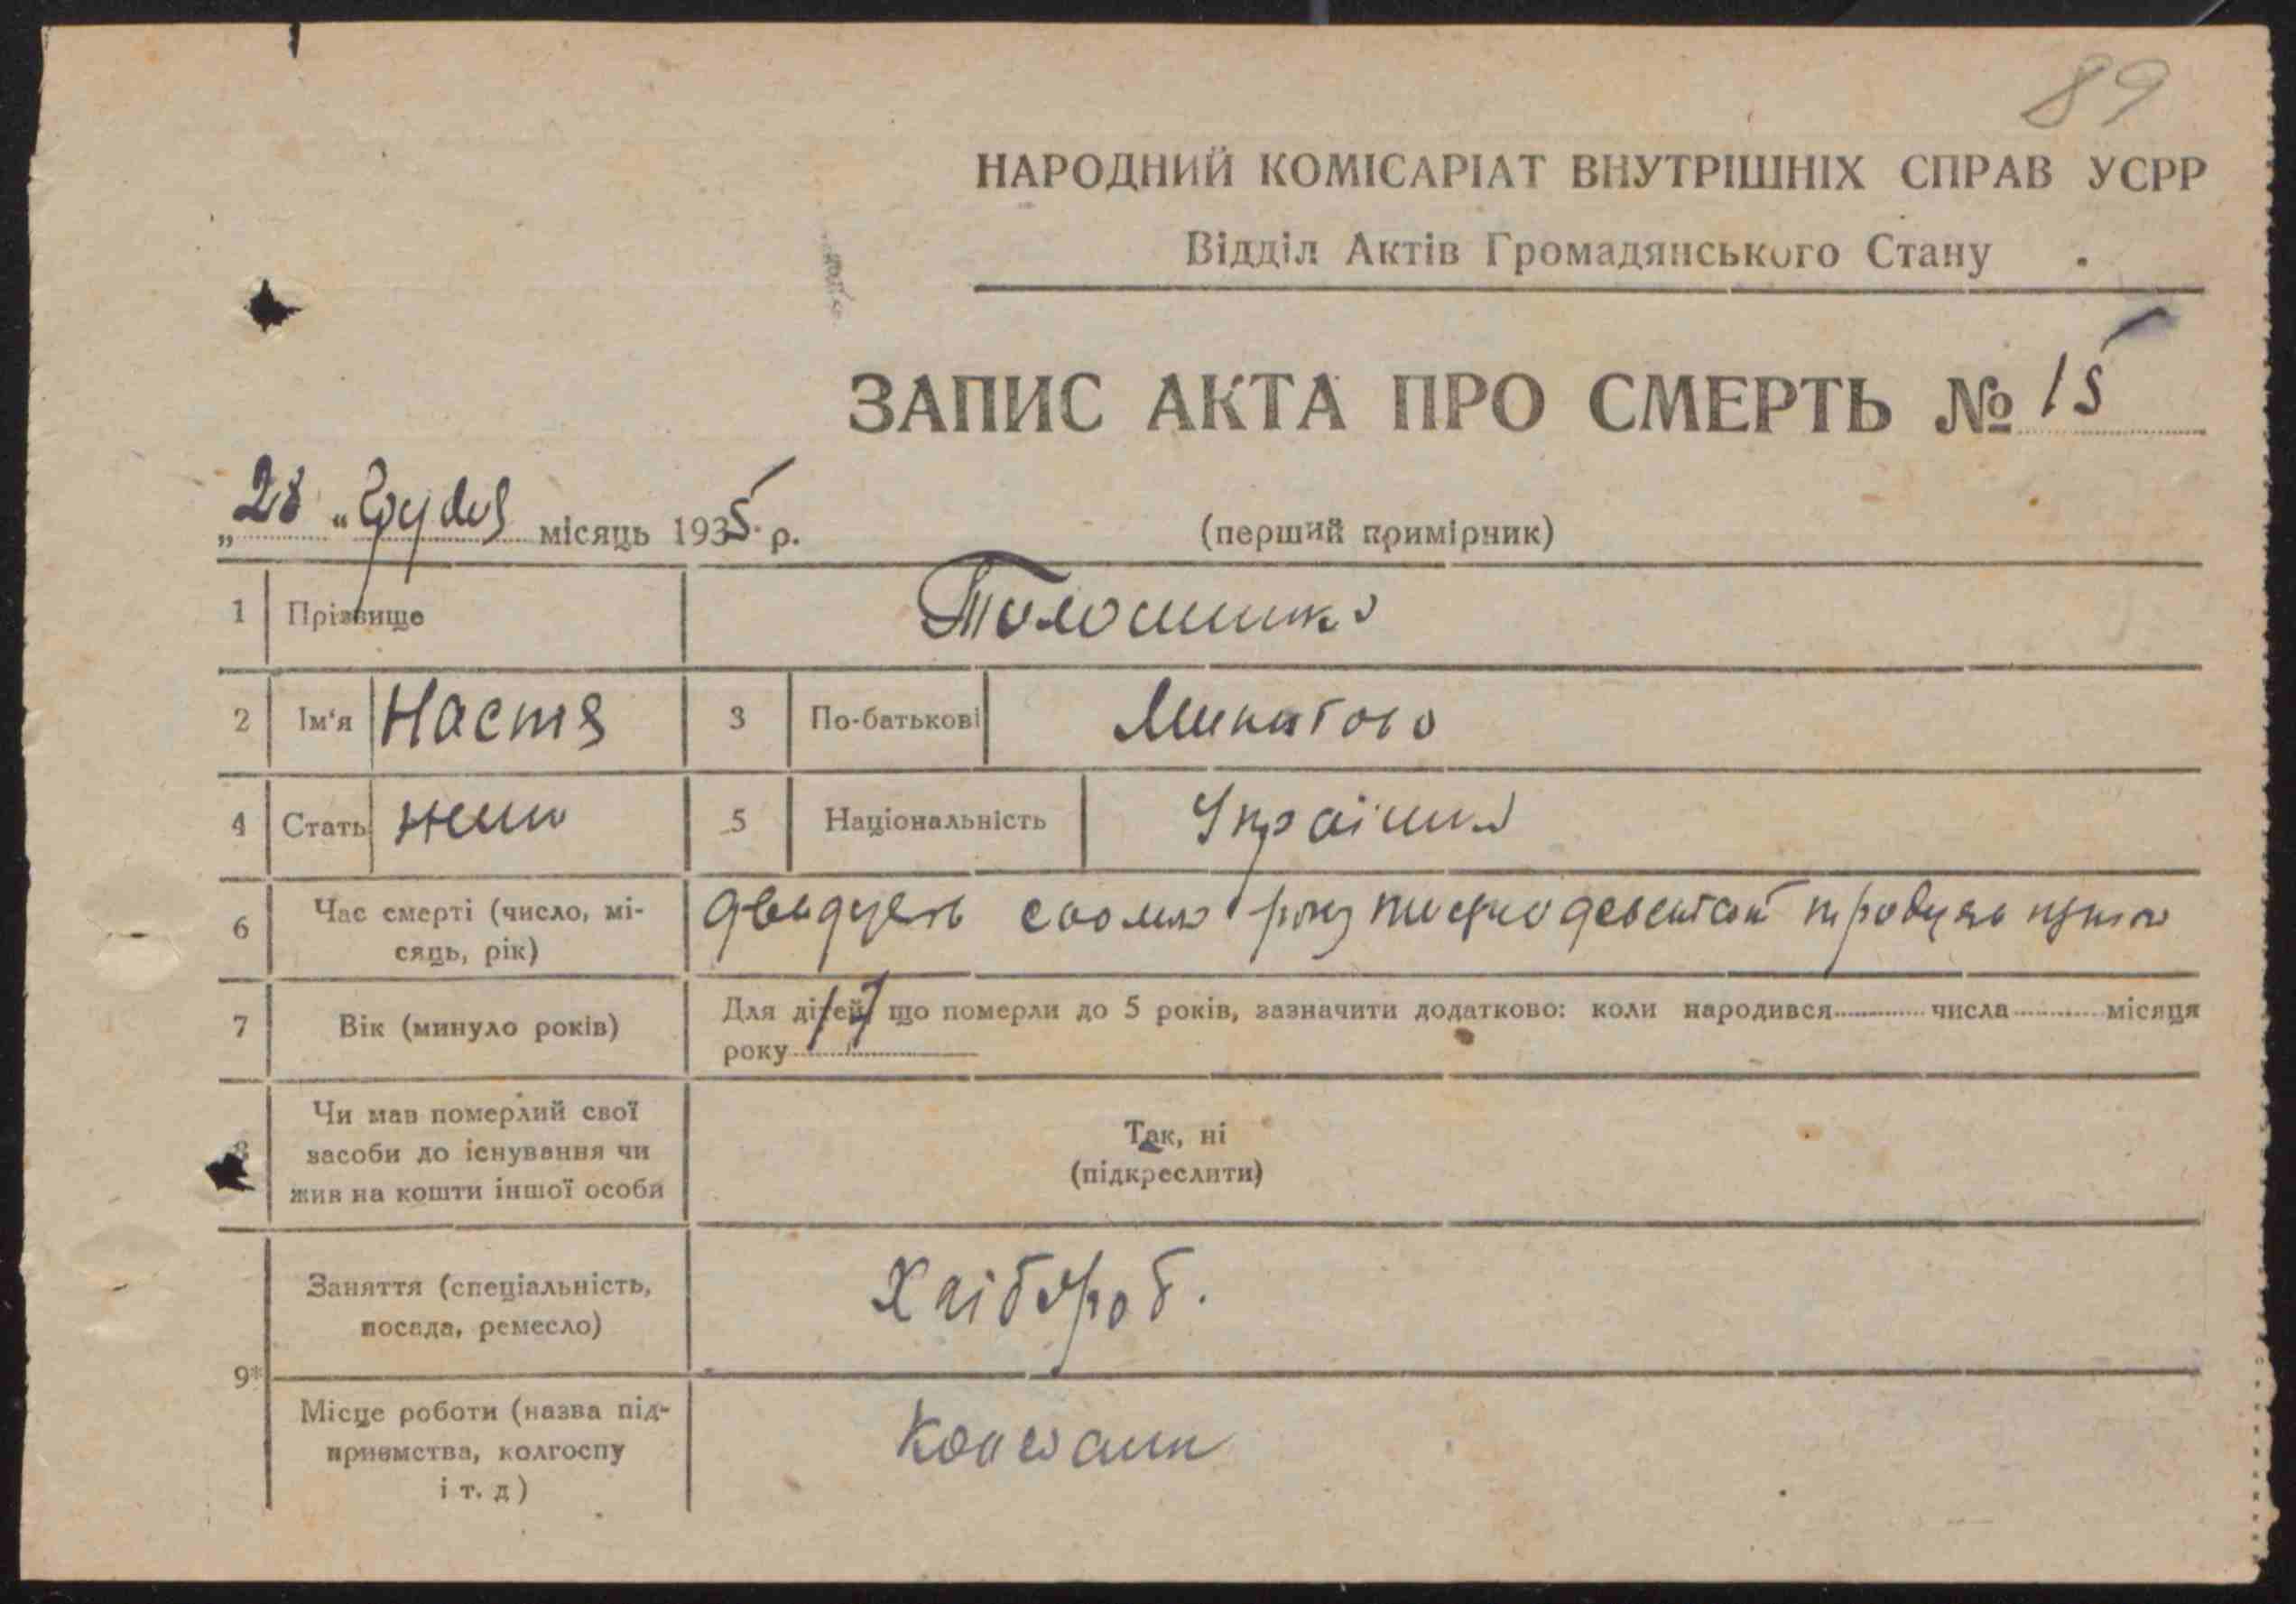 89
НАРОДНИЙ КОМІСАРІАТ ВНУТРІШНІХ СПРАВ УСРР
Відділ Актів Громадянського Стану
ЗАПИС АКТА ПРО СМЕРТЬ № 15
„28“ Грудня місяць 1935 р.
(перший примірник)
1 Прізвище
2 Ім‘я Настя 3 По-батькові
4 Стать жин 5 Національність Українка
6 Час смерті (число, мі-
сяць, рік)
7 Вік (минуло років) 17 Для дітей, що померли до 5 років, зазначити додатково: коли народився числа місяця
року
8 Чи мав померлий свої
засоби до існування чи
жив на кошти іншої особи
Так, ні
(підкреслити)
9* Заняття (спеціальність,
посада, ремесло)
Хлібороб.
Місце роботи (назва під-
приємства, колгоспу
і т. д)